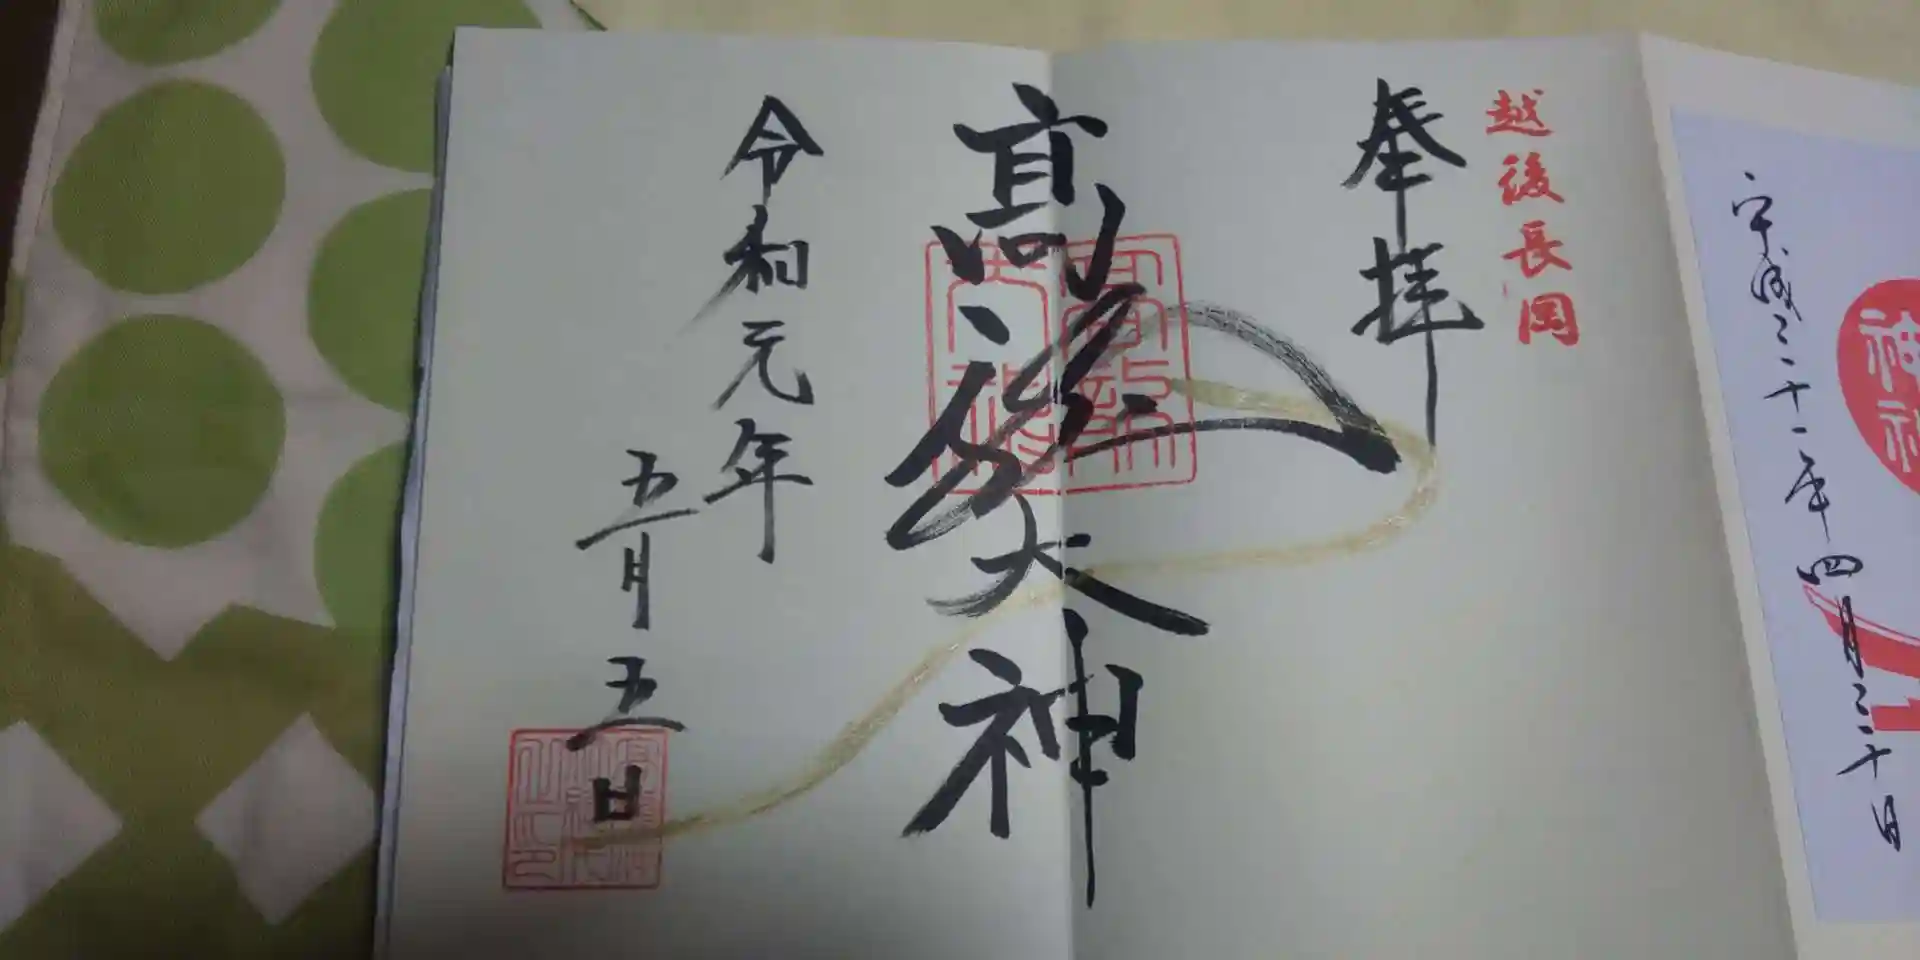 平成三十一年四月三十日
越後長岡
奉拝
髙龍大神
令和元年
五月五日